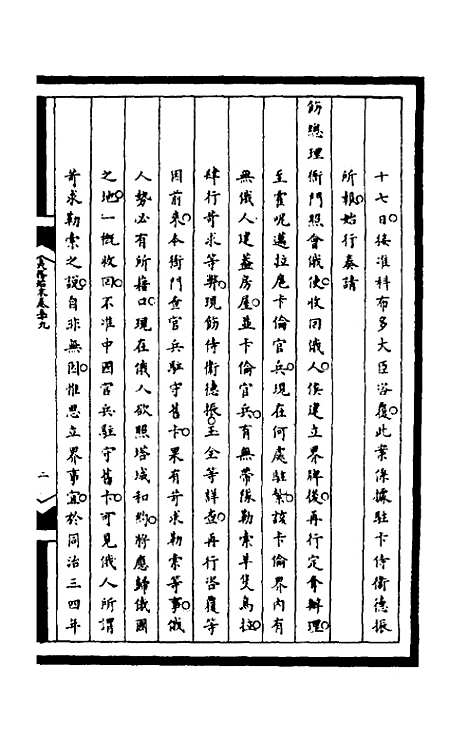 十七日。接准科布多大臣咨覆。此案係據駐卡侍衛德振
所報。始行奏請
飭總理衙門照會俄使。收回俄人。俟建立界牌後。再行定會辦理。
至霍呢邁拉扈卡倫官兵。現在何處駐紮。該卡倫界內有
無俄人建蓋房屋。並卡倫官兵。有無帶隊勒索羊隻烏拉。
肆行苛求等弊。現飭侍衛德振。玉全等詳查。再行咨覆等
因前來。本衙門查官兵駐守舊卡。果有苛求勒索等事。俄
人勢必有所藉口。現在俄人欲照塔城和約。將應歸俄國
之地。一概收回。不准中國官兵駐守舊卡。可見俄人所謂
苛求勒索之說。自非無因。惟思立界事宜。於同治三四年
二